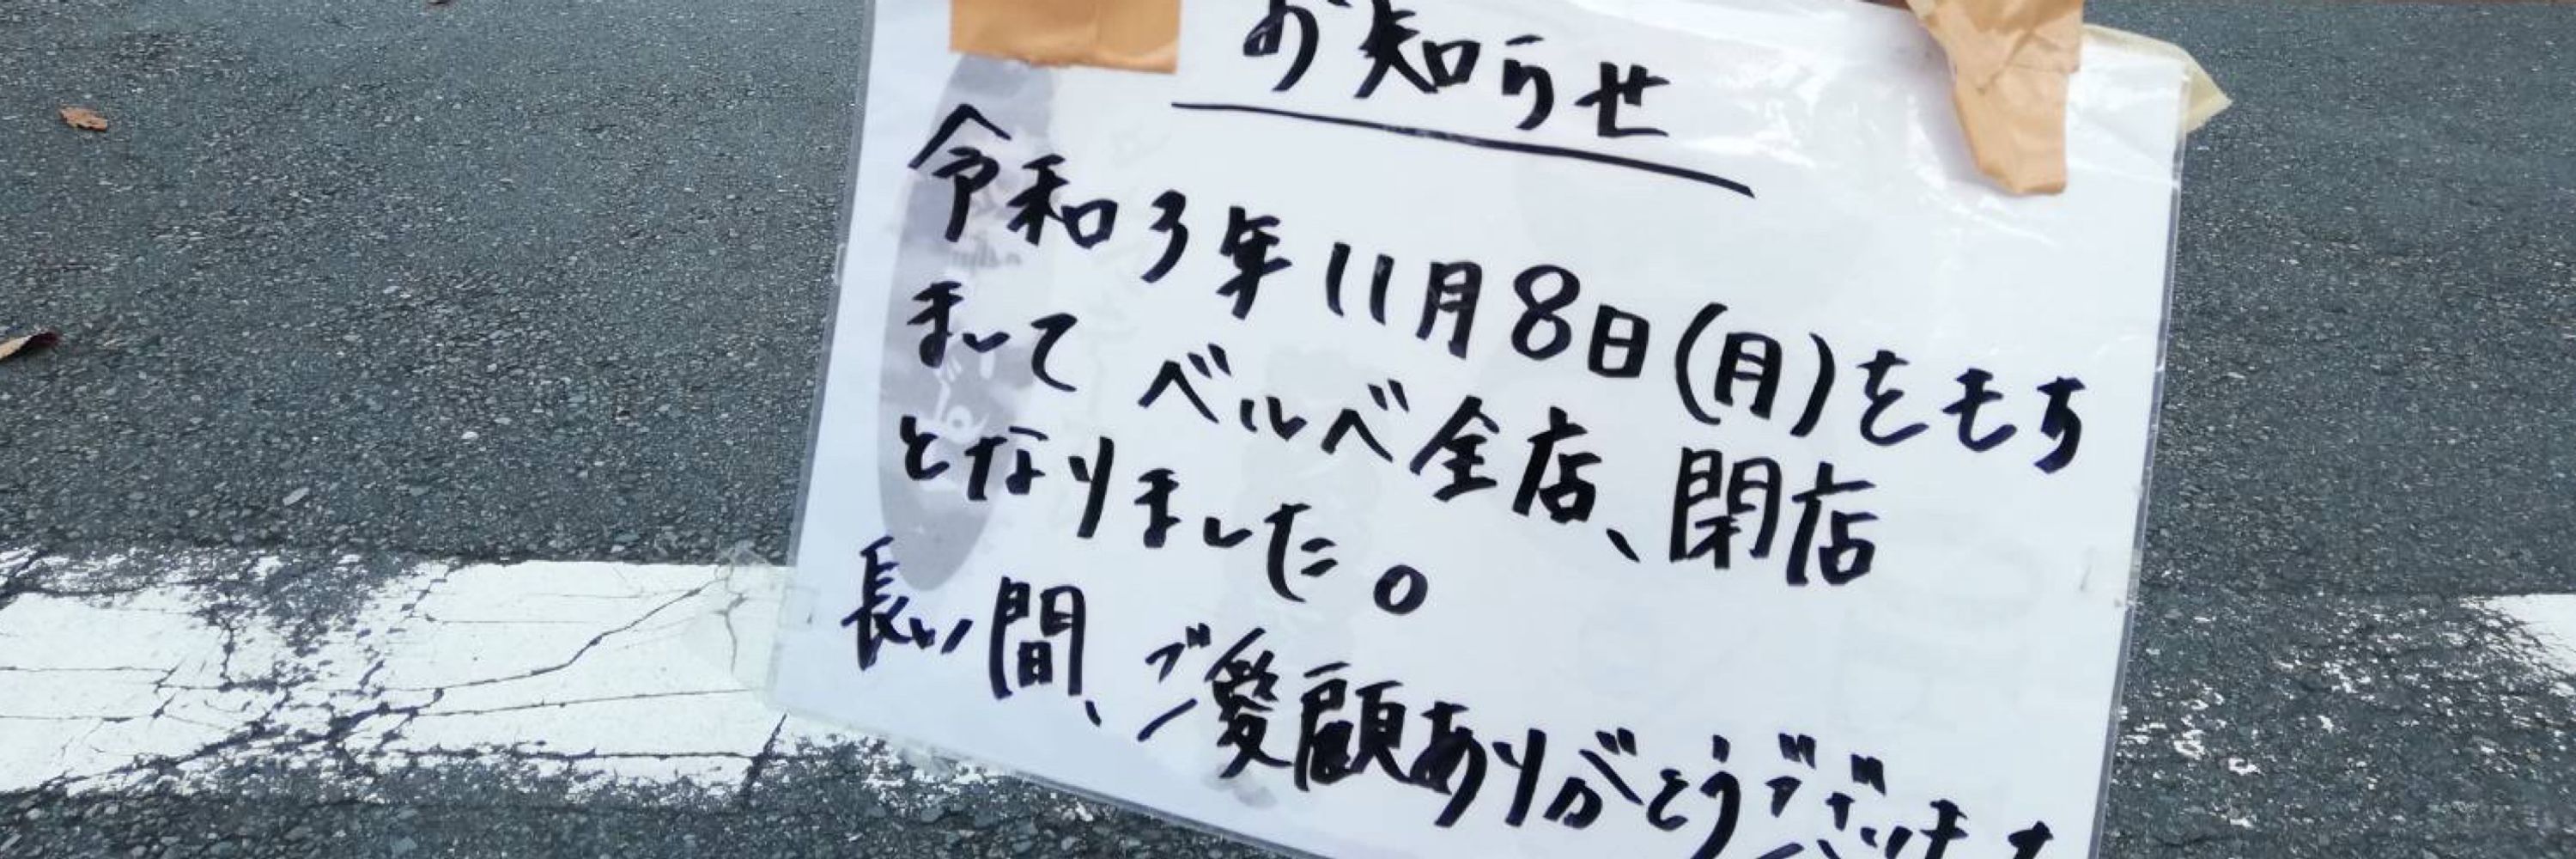 お知らせ
令和3年11月8日(月)をもち
まして ベルベ全店、閉店
となりました。
長い間、ご愛顧ありがとうございま